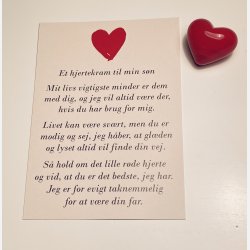 Et hjertekram til min søn
Mit livs vigtigste minder er dem
med dig, og jeg vil altid være der,
hvis du har brug for mig.
Livet kan være svært, men du er
modig og sej, jeg håber, at glæden
og lyset altid vil finde din vej.
Så hold om det lille røde hjerte
og vid, at du er det bedste, jeg har.
Jeg er for evigt taknemmelig
for at være din far.